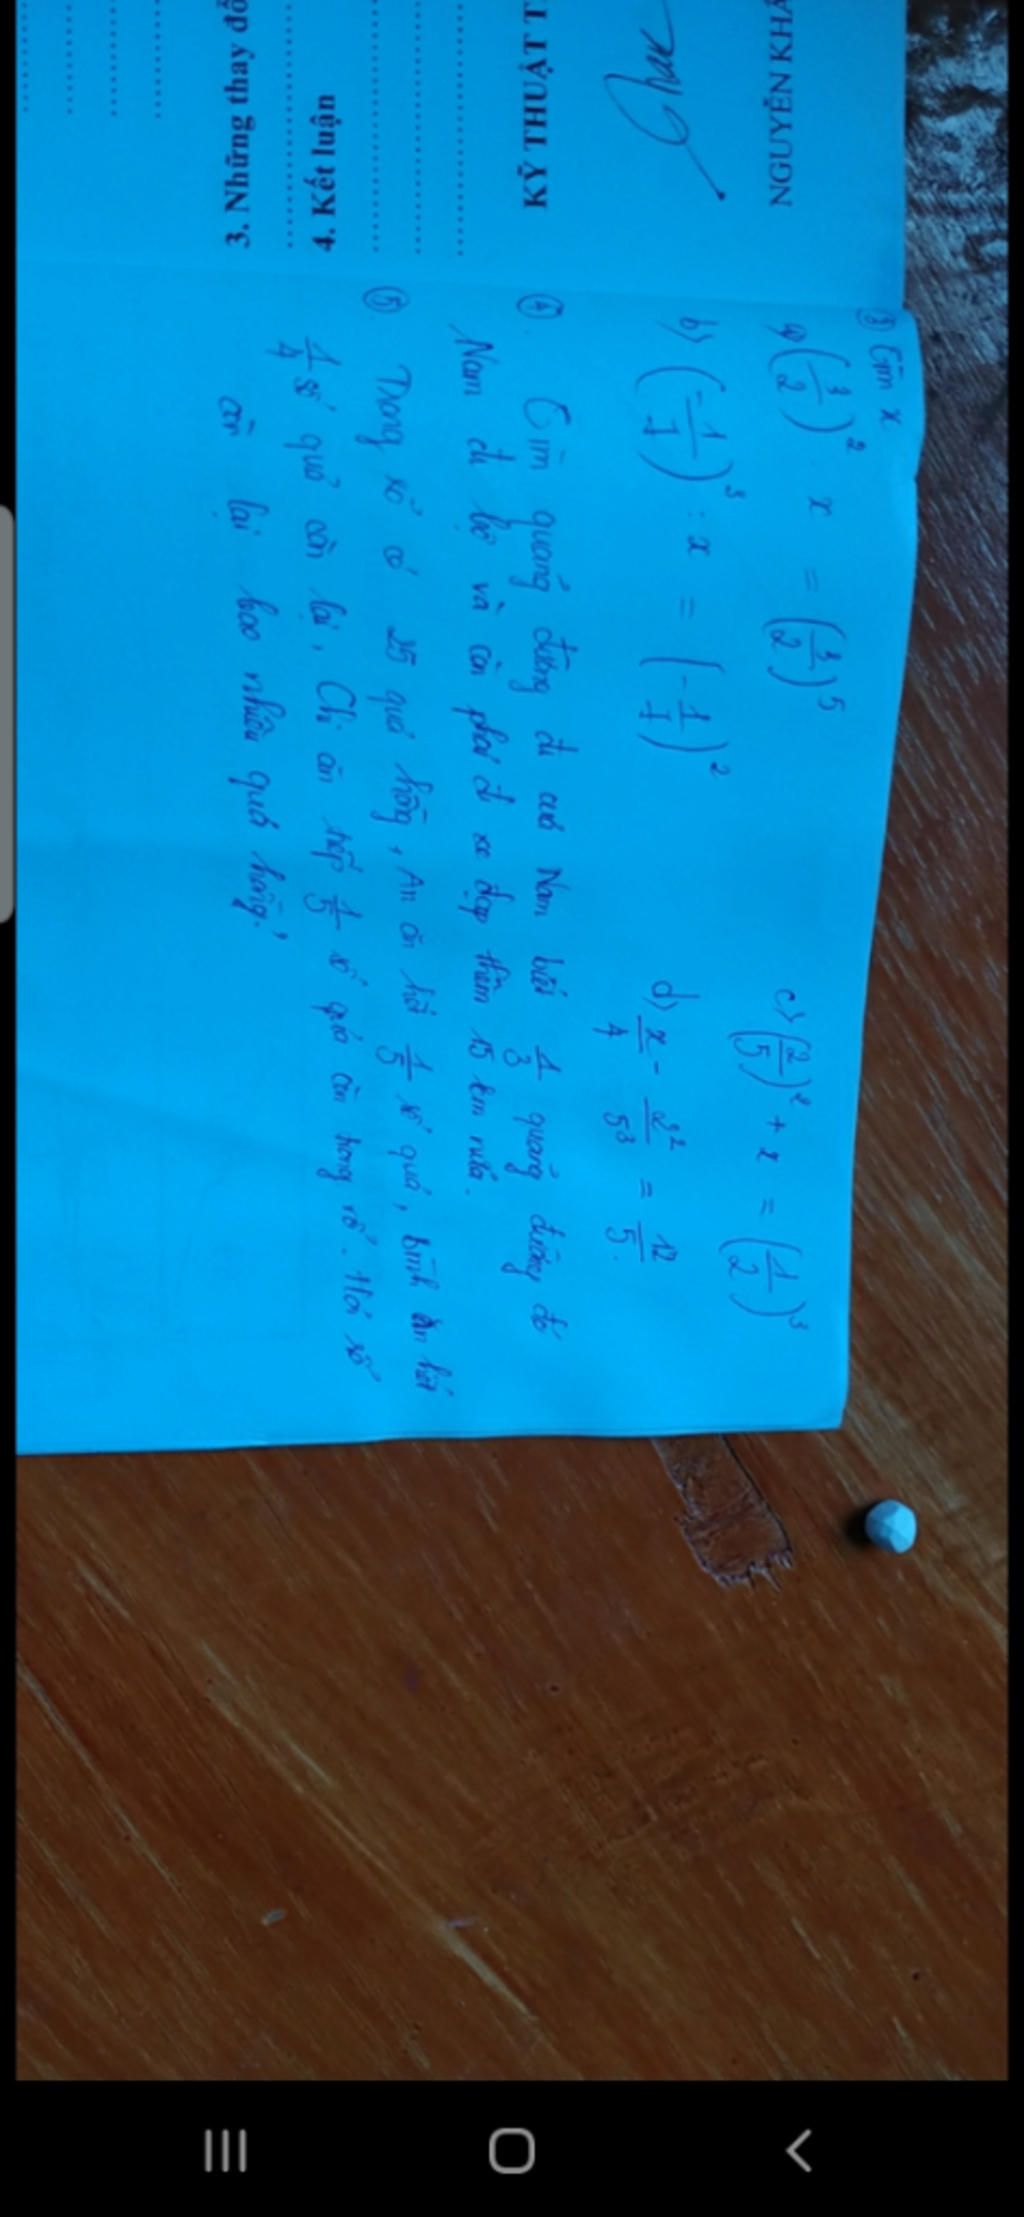 3. Những thay đổ
4. Kết luận
KỸ THUẬT T
NGUYỄN KHÁ
③ Tìm x
a) (3/2)² . x = (3/2)⁵
b) (-1/1)³ : x = (-1/1)²
c) (2/5)² + x = (1/2)³
d) x/4 - 2²/5³ = 12/5.
④. Tìm quãng đường đi của Nam biết 1/3 quãng đường đó
Nam đi bộ và còn phải đi xe đạp thêm 15 km nữa.
⑤. Trong rổ có 25 quả hồng, An ăn hết 1/5 số quả, Bình ăn hết
1/4 số quả còn lại, Chi ăn tiếp 1/5 số quả còn trong rổ. Hỏi rổ
còn lại bao nhiêu quả hồng?